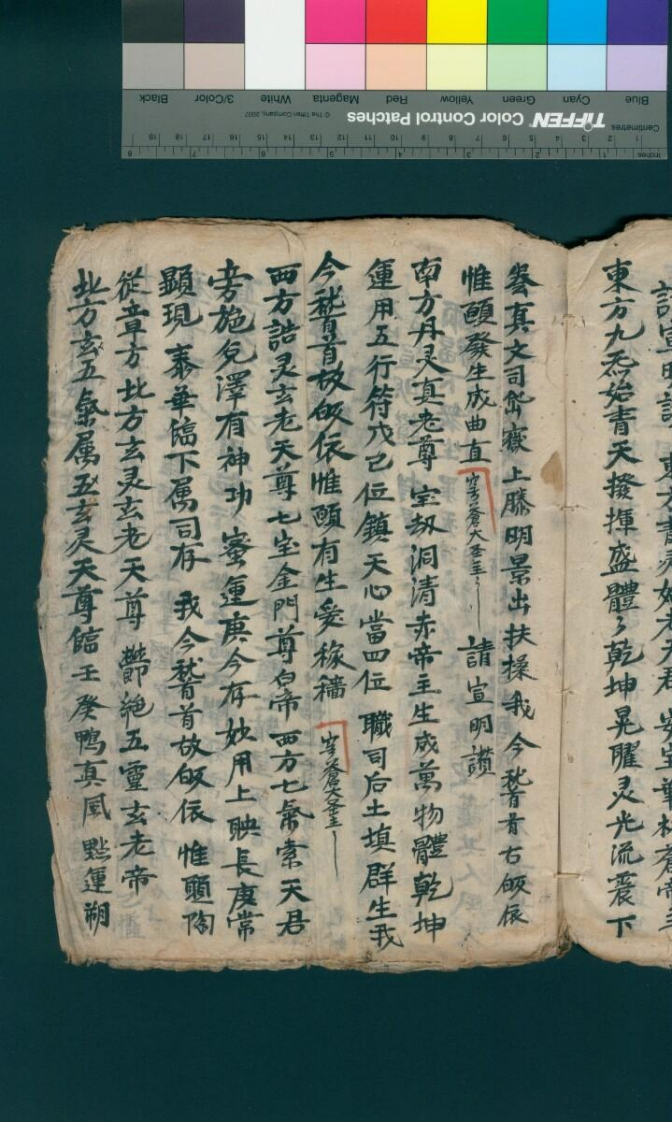 東方九炁始青天撥揮盛體々乾坤晃曜灵光流震下
眷真文司岱嶽上騰明景出扶搡我今稽首右皈依
惟願發生成曲直 請宣明讃
南方丹灵真老尊宝劫洞清赤帝主生成萬物體乾坤
運用五行符戊己位鎮天心當四位職司后土填群生我
今稽首故皈依惟願有生爰稼穡
西方誥灵玄老天尊七宝金門尊白帝西方七炁素天君
旁施兌澤有神功蜜運庚今存妙用上映長庚常
顕現泰華臨下属司存我今稽首故皈依惟願陶
從章方北方玄灵玄老天尊欝絕五靈玄老帝
北方玄五炁属五玄灵天尊臨壬癸鴨真風點運朔
TIFFEN Color Control Patches
© The Tiffen Company, 2007
Centimetres
Inches
Blue Cyan Green Yellow Red Magenta White 3/Color Black